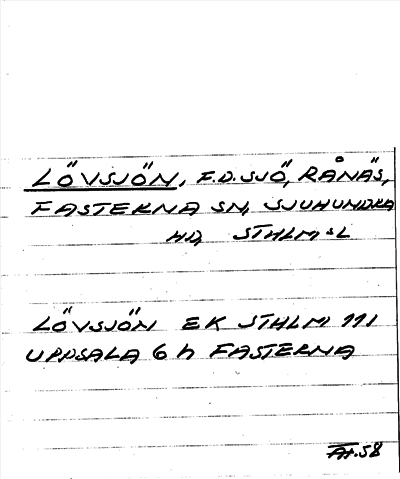 LÖVSJÖN, F.D. SJÖ, RÅNÄS,
FASTERNA SN, SJUHUNDRA
HD, STHLMS L
LÖVSJÖN EK STHLM 111
UPPSALA 6 h FASTERNA
AH.58